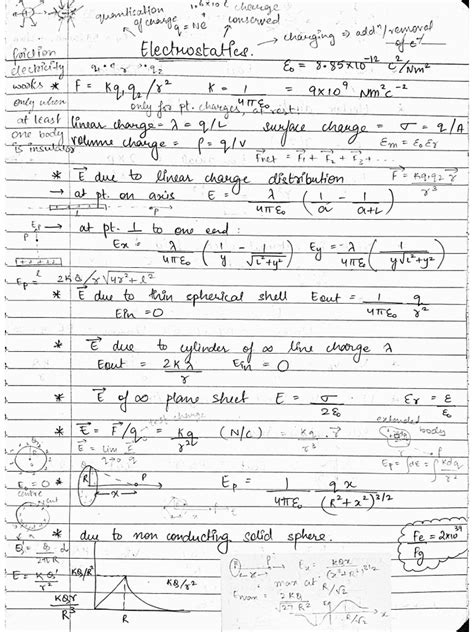 quantisation of charge q = ne
charge conserved
charging → addn/removal of e⁻
Electrostatics.
friction electricity works only when at least one body is insulator
ε₀ = 8.85×10⁻¹² C²/Nm²
* F = Kq₁q₂/r² K = 1/4πε₀ = 9×10⁹ Nm²C⁻²
only for pt. charges, at rest
linear charge = λ = q/L surface charge = σ = q/A
volume charge = ρ = q/V εm = ε₀εr
Fnet = F₁ + F₂ + F₃ + ...
* E due to linear charge distribution F = Kq₁q₂ r/r³
→ at pt. on axis E = λ/4πε₀ (1/a - 1/a+L)
→ at pt. ⊥ to one end:
Ex = λ/4πε₀ (1/y - 1/√L²+y²) Ey = λ/4πε₀ (L/y√L²+y²)
Ep = 2KQ/r√4r²+l²
* E due to thin spherical shell Eout = 1/4πε₀ q/r²
Ein = 0
* E due to cylinder of ∞ line charge λ
Eout = 2Kλ/r Ein = 0
* E of ∞ plane sheet E = σ/2ε₀ εr = ε/ε₀
test charge
* E = F/q = Kq/r² (N/C) = Kq/r³ . r
extended body
E = lim q→0 F/q
Ep = ∫dE = ∫Kdq/r²
R P x
Ep = 1/4πε₀ qx/(R²+x²)^3/2
E₀ = 0 centre
cut
* due to non conducting solid sphere.
Fe/Fg = 2×10³⁹
E = KQ/r²
KQ/R² KQ/r²
KQr/R³
R
Ex = KQx/(x²+R²)^3/2
max at R/√2
Emax = 2KQ/√27 R²